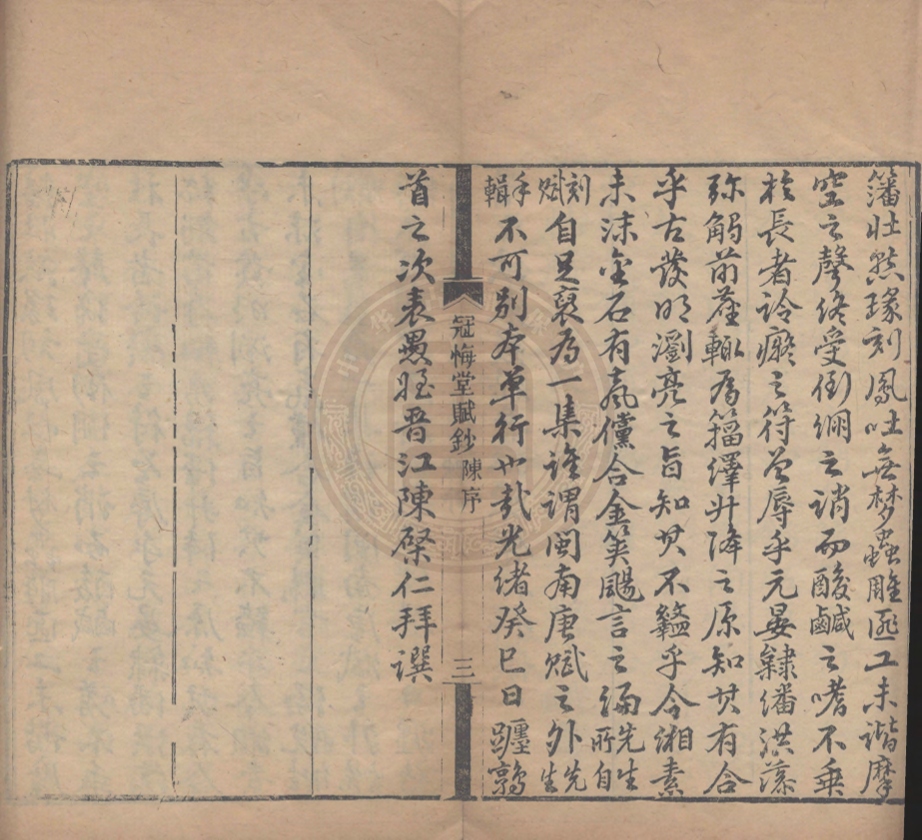 籓壯然瑑刻鳳吐無夢蟲雕匪工未諧摩
空之聲終受倒繃之誚而酸鹹之嗜不乘
於長者詅癡之符曾辱乎元晏肄繙洪藻
弥觸前塵輒為籀繹升降之原知其有合
乎古發明瀏亮之旨知其不盭乎今緗素
未沫金石有聲儻合金筴颺言之編先生所自
刻賦自足裒為一集誰謂閩南唐賦之外先生
手輯不可別本單行也哉光緒癸巳日躔鶉
首之次表愚姪晋江陳棨仁拜譔
冠悔堂賦鈔 陳序 三